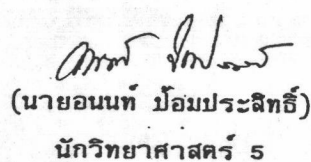 (นายอนนท์ ป้อมประสิทธิ์)
นักวิทยาศาสตร์ 5